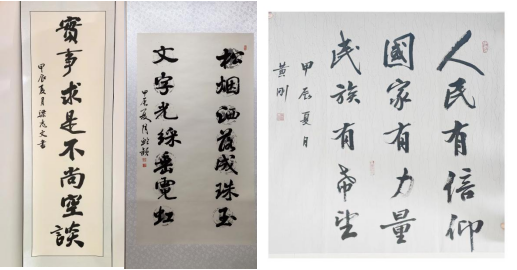 實事求是不尚空談
甲辰夏月梁志文書
松烟洒落成珠玉
文字光綵垂霓虹
甲辰夏月
人民有信仰
國家有力量
民族有希望
甲辰夏月
黄剛